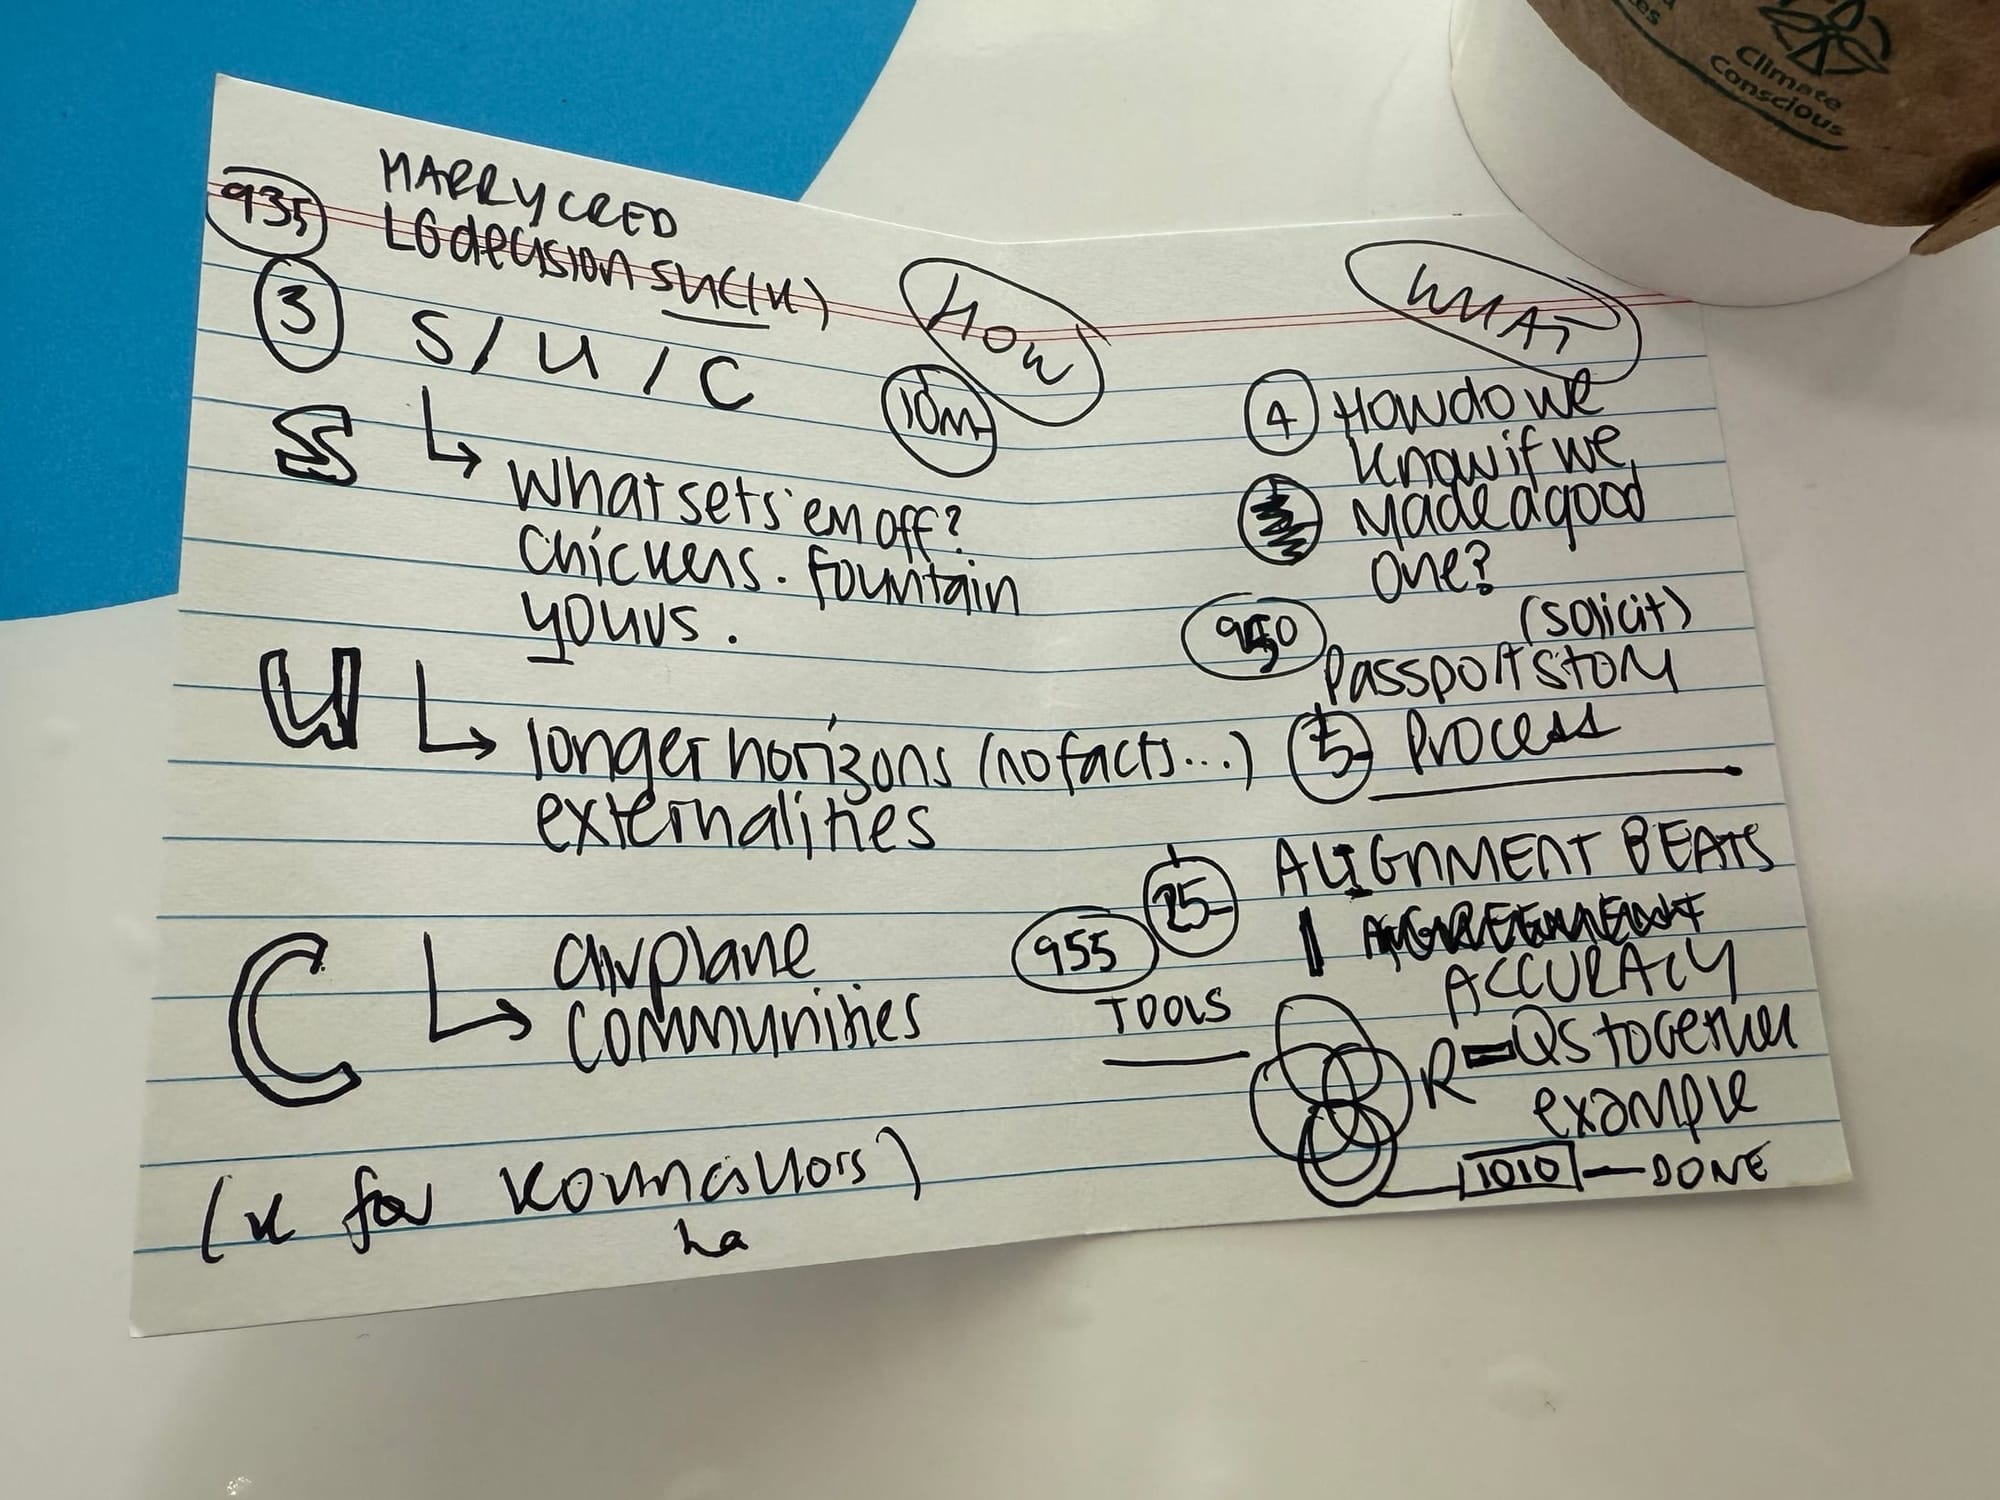 935
MARRY CRED
LG decision suc(k)
3
S / U / C
HOW
10m
S
What sets 'em off?
Chickens. Fountain
yours.
U
longer horizons (no facts...)
externalities
C
airplane
communities
(K for Kouncillors)
ha
WHAT
4
How do we
know if we
made a good
one?
950
(solicit)
Passport story
5
Process
15
ALIGNMENT BEATS
ACCURACY
955
TOOLS
R = Qs together
example
1010 — DONE
Climate
Conscious